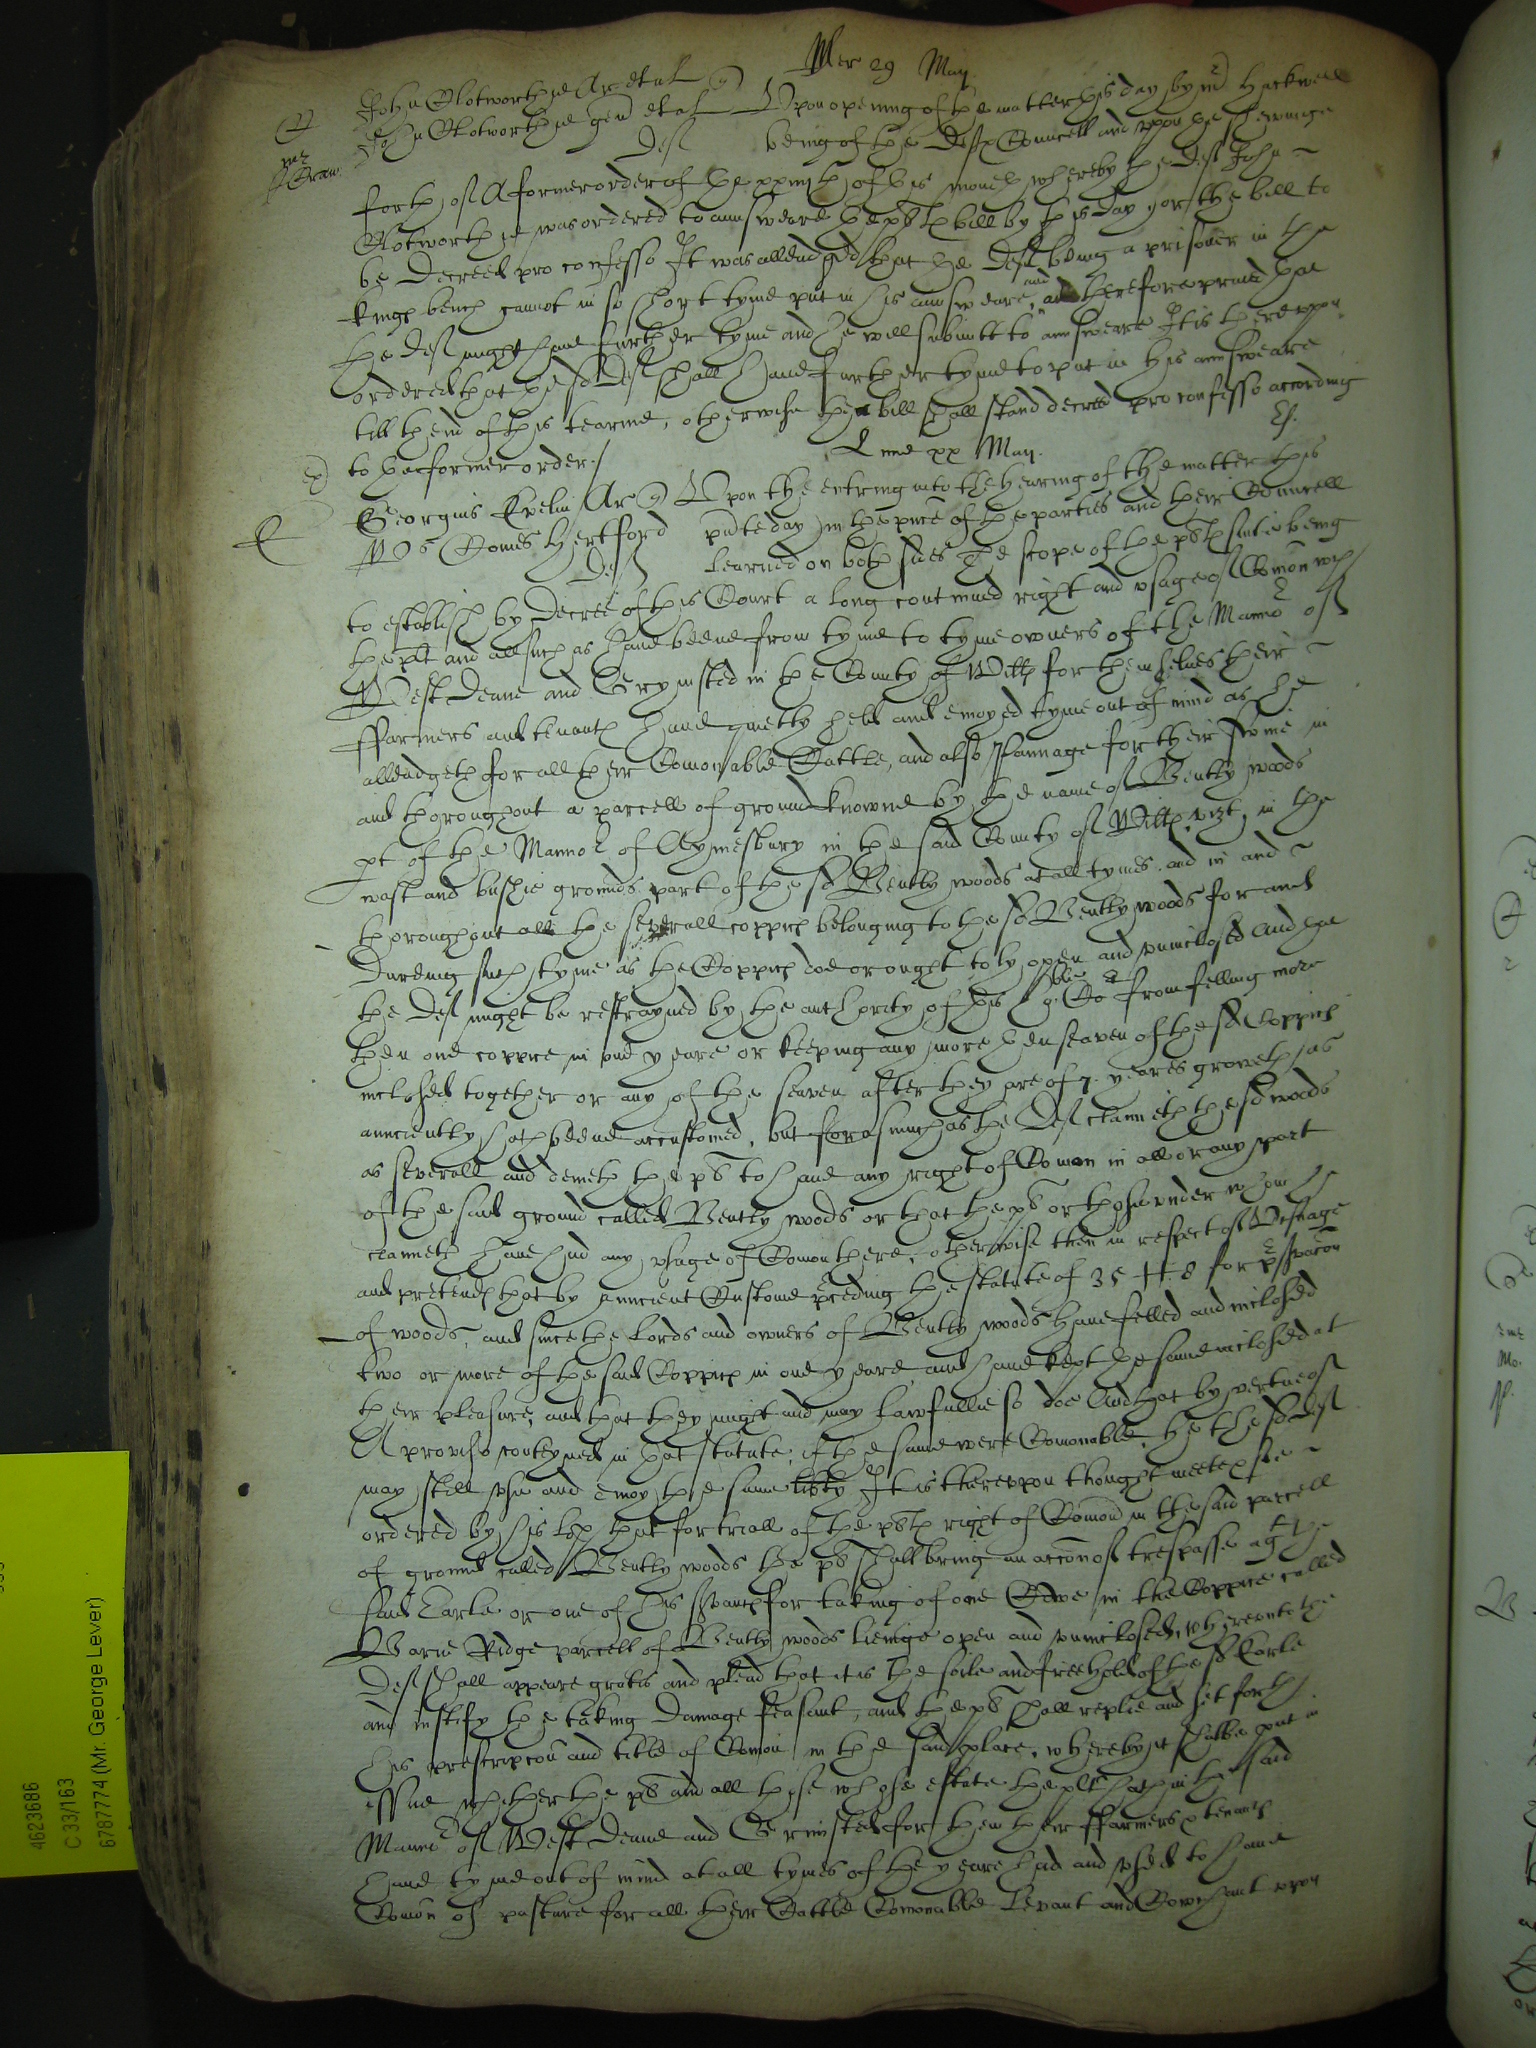 Mer 29 May
John Clotworthie Ar et al q
John Clotworthie gen et al Upon opening of the matter this day by mr Hackwell
Def being of the Defts Councell and upon the shewinge
forth of A former order of the xxiiith of this moneth whereby the Def John
Clotworthie was ordered to aunsweare the plts bill by this day or the bill to
be decreed pro confesso It was alleadged that the Def being a prisoner in the
kings bench cannot in so short tyme put in his aunsweare, and therefore praied that
the Def might have further tyme and he will submitt to aunsweare It is thereupon
ordered that the sd Def shall have further tyme to put in his aunsweare
till thend of this tearme, otherwise the bill shall stand decreed pro confesso according
to the former order./
Lune xx May
Georgius Evelin Ar q Upon the entring into the hearing of the matter this
Comes Hertford pnte day in the pnce of the parties and their Councell
Def learned on both sides The scope of the plts suite being
to establish by decree of this Court a long contynued right and usage of Comon wch
the plt and all such as have beene from tyme to tyme owners of the Mannor of
West Deane and Grymsted in the County of Wilts for themselves their
ffarmers and tenants have quietly held and enioyed tyme out of mind as he
alleadgeth for all their Comonable Cattle, and also Pannage for their swine in
and thoroughout a parcell of ground knowne by the name of Bently woods
pt of the Mannor of Aymesbury in the said County of Wilts, vizt, in the
wast and bushie grounds part of the sd Bently woods at all tymes, and in and
thoroughout all the severall coppics belonging to the sd Bently woods for and
dureing such tyme as the Coppics doe or ought to ly open and uninclosed And that
the Def might be restrayned by the authority of this ho:ble Cort from felling more
then one coppice in one yeare or keeping any more then seaven of the sd Coppics
inclosed together or any of the seaven after they are of 7. yeares groweth as
aunciently hath beene accustomed, but forasmuch as the Def claimeth the sd woods
as severall and denieth the pl to have any right of Comon in all or any part
of the said ground called Bently woods or that the pl or those under whom he
claimeth have had any usage of Comon there, otherwise then in respect of
and pretends that by auncient Custome preceding the statute of 35 H: 8 for prservacon
of woods, and since the Lords and owners of Bently woods have felled and inclosed
two or more of the said Coppics in one yeare and have kept the same inclosed at
their pleasure, and that they might and may lawfullie so doe And that by vertue of
A proviso conteyned in that statute, if the same were Comonable, he the sd Def
may still use and enioy the same libty It is thereupon thought meete & soe
ordered by his Lop that for triall of the plts right of Comon in the said parcell
of ground called Bently woods the pl shall bring an accon of trespasse agt the
said Earle or one of his srvants for taking of one Cowe in the Coppice called
Ridge parcell of Bently woods lieinge open and uninclosed, whereunto the
Def shall appeare gratis and plead that it is the soile and freehold of the sd Earle
and iustify the taking damage feasant, and the pl shall replie and set forth
his prescripcon and title of Comon in the said place, whereby it shalbe put in
issue whether the pl and all those whose estate the plt hath in the said
Mannor of West Deane and Grimsted for them their ffarmers & tenants
have tyme out of mind at all tymes of the yeare had and used to have
Comon of pasture for all their Cattle Comonable Levant and Cowchant upon
4623686
C 33/163
6787774 (Mr. George Lever)